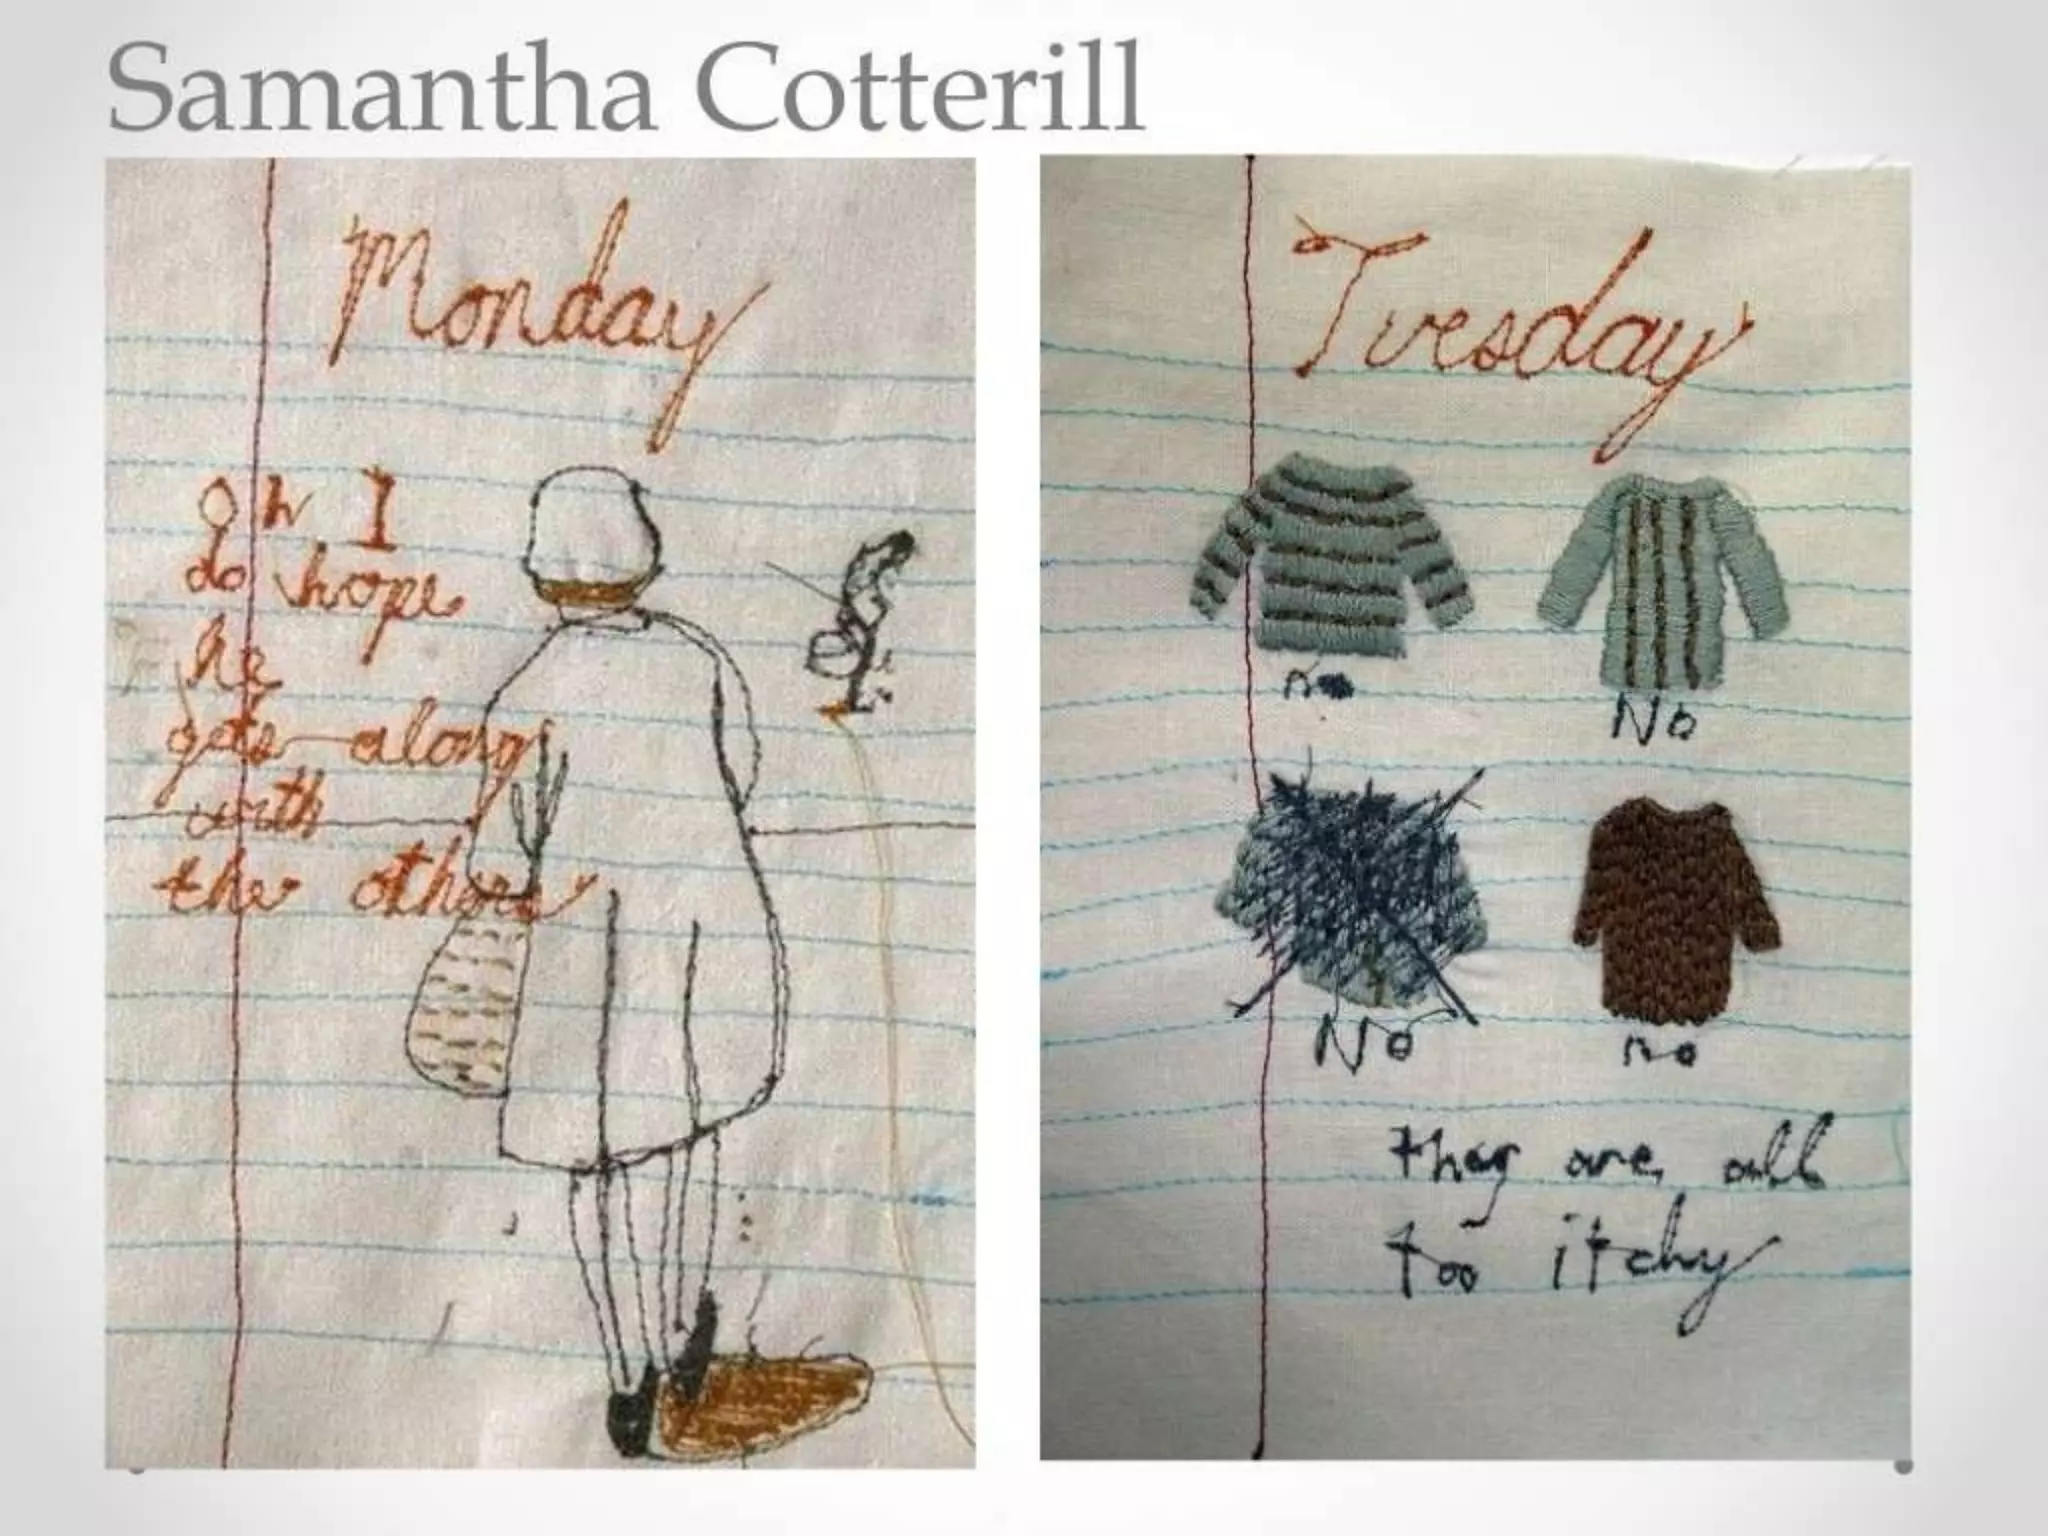 Samantha Cotterill
Monday
Oh I
do hope
he
gets along
with
the others
Tuesday
no
No
No
no
they are all
too itchy